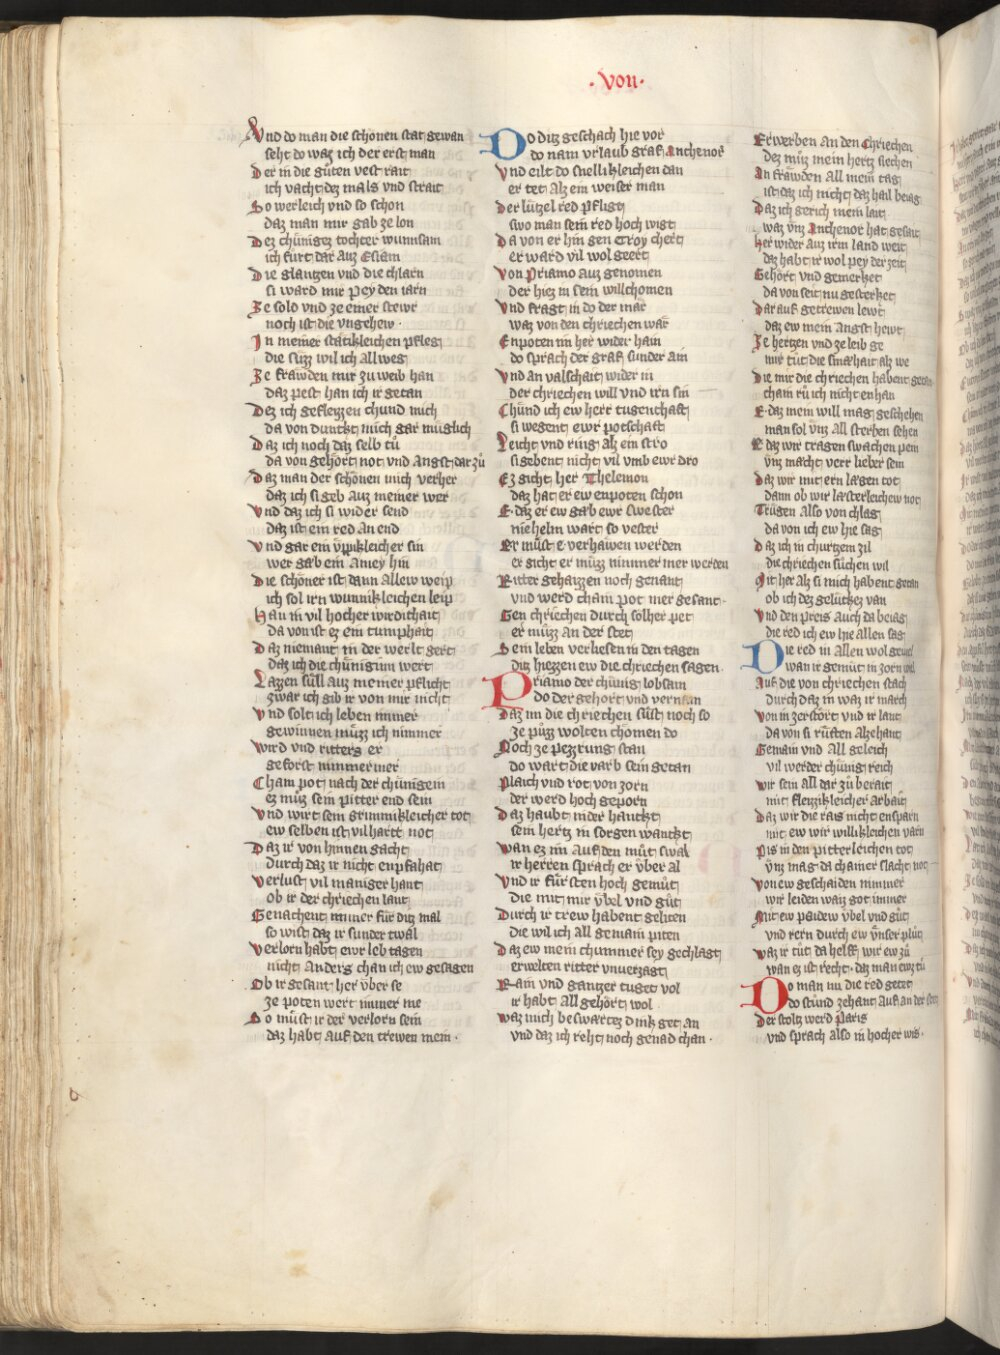 ·Von·
Vnd do man die schonen stat gewan
seht do waz ich der erst man
Der in die guͤten vest rait
ich vacht dez mals vnd strait
So werleich vnd so schon
daz man mir gab ze lon
Dez chuͤnigez tochter wunnsam
ich furt dar auz Esiam
Die glantzen vnd die chlarn
si ward mir pey den iarn
Ze sold vnd ze einer stewr
noch ist die vngehewr
In meiner staͤtikleichen pfleg
die suͤzz wil ich allweg
Ze frawden mir zu weib han
daz pest han ich ir getan
Dez ich gefleyzzen chund mich
da von dunckt mich gar muͤglich
Daz ich noch daz selb tuͤ
da von gehoͤrt not vnd Angst dar zuͦ
Daz man der schonen mich verher
daz ich si geb Auz meiner wer
Vnd daz ich si wider send
daz ist ein red An end
Vnd gar ein vppikleicher sin
wer gaͤb ein Amey hin
Die schoͤner ist dann Allew weip
ich sol irn wunnikleichen leip
Han in vil hocher wirdichait
da von ist ez ein tumphait
Daz niemant in der werlt gert
daz ich die chuͤnigiun wert
Lazzen suͤll Auz meiner pflicht
zwar ich gib ir von mir nicht
Vnd solt ich leben immer
gewinnen muͤzz ich nimmer
Wird vnd ritters er
geforst nimmermer
Cham pot nach der chuͤnigein
ez muͤz sein pitter end sein
Vnd wirt sein grimmikleicher tot
ew selben ist vil hartt not
Daz ir von hinnen gacht
durch daz ir nicht enpfahat
Verlust vil maniger hant
ob ir der chriechen lant
Genachent immer fuͤr ditz mal
so wist daz ir sunder twal
Verlorn habt ewr leb tagen
nicht Anders chan ich ew gesagen
Ob ir gesant her vber se
ze poten wert immer me
So muͤst ir der verlorn sein
daz habt Auf den trewen mein·
Do ditz geschach hie vor
do nam vrlaub graf Anthenor
Vnd eilt do snellikleichen dan
er tet Alz ein weiser man
Der luͤtzel red pfligt
swo man sein red hoch wigt
Da von er hin gen Troy chert
er ward vil wol geert
Von Priamo auz genomen
der hiez in sein willchomen
Vnd fragt in do der maͤr
waz von den chriechen waͤr
Enpoten im her wider hain
do sprach der graf sunder ain
Vnd an valschait wider in
der chriechen will vnd irn sin
Chuͤnd ich ew herr tugenthaft
si wegent ewr potschaft
Leicht vnd ring alz ein stro
si gebent nicht vil vmb ewr dro
Ez gicht her Thelemon
daz hat er ew enpoten schon
E·daz er ew gab ewr swester
nie helm wart so vester
Er muͤst e verhawen werden
er gicht er muͤzz nimmer mer werden
Ritter gehaizzen noch genant
vnd werd cham pot mer gesant·
Gen chriechen durch solher pet
er muͤzz an der stet
Sein leben verliesen in den tagen
ditz hiezzen ew die chriechen sagen·
Priamo der chuͤnig lobsam
do der gehort vnd vernam
Daz im die chriechen suͤst noch so
ze puͤzz wolten chomen do
Noch ze pezzrung stan
do wart die varb sein getan
Plaich vnd rot von zorn
der werd hoch geporn
Daz haubt nider hanckt
sein hertz in sorgen wanckt
Wan ez im Auf den muͤt swal
ir herren sprach er vber al
Vnd ir fuͤrsten hoch gemuͤt
die mit mir vbel vnd guͤt
Durch ir trew habent geliten
die wil ich all gemain piten
Daz ew mein chummer sey gechlagt
erwelten ritter vnuerzagt
Rain vnd gantzer tuget vol
ir habt all gehoͤrt wol
Waz mich beswartez dink get an
vnd daz ich reht noch genad chan·
Erwerben An den Chriechen
dez muͤz mein hertz siechen
An frawden All mein tag
ist daz ich nicht daz hail beiag
Daz ich gerich mein lait
waz vnz Anthenor hat gesait
Her wider auz irm land weit
daz habt ir wol pey der zeit
Gehoͤrt vnd gemerket
da von seit nu gesterket
Dar auf getrewen lewt
daz ew mein angst hewt
Ze hertzen vnd ze leib ge
mir tuͤt die smaͤhait alz we
Die mir die chriechen habent getan
cham ruͤ ich nicht enhan
E·daz mein will mag geschehen
man sol vnz All sterben sehen
E daz wir tragen swachen pein
vnz macht verr lieber sein
Daz wir mit ern laͤgen tot
dann ob wir laͤsterleichew not
Truͤgen Also von chlag
da von ich ew hie sag
Daz ich in churtzem zil
die chriechen suͤchen wil
Mit her Alz si mich habent getan
ob ich dez geluͤckez van
Vnd den preis Auch da beiag
die red ich ew hie allen sag
Die red in Allen wol geuiel
wan ir gemuͤt in zorn wiel
Auf die von chriechen stach
durch daz in waz ir mach
Von in zerstoͤrt vnd ir lant
da von si ruͤsten alzehant
Gemain vnd All geleich
vil werder chuͤnig reich
Wir sein all dar zuͤ berait
mit fleizzikleicher arbait
Daz wir die rais nicht ensparn
mit ew wir willikleichen varn
Pis in den pitterleichen tot
vnz mag da chainer slacht not
Von ew geschaiden nimmer
wir leiden waz got immer
Mit ew paidew vbel vnd guͤt
vnd rern durch ew vnser pluͤt
Waz ir tuͤt da helff wir ew zuͤ
wan ez ist recht·daz man ewz tuͤ
Do man nu die red getet
do stuͤnd zehant auf an der stet
Der stoltz werd Paris
vnd sprach also in hocher wis·